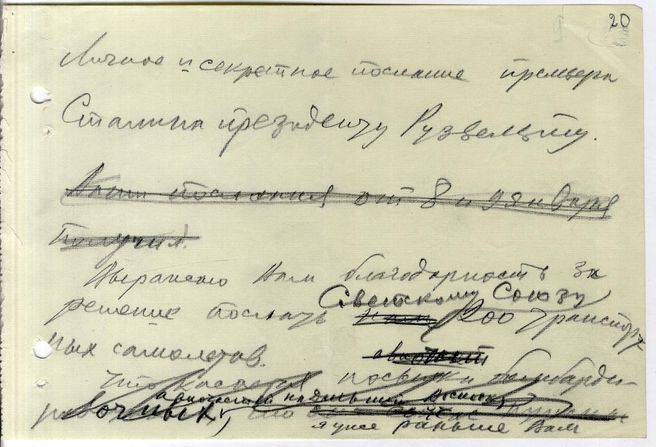 20
Личное и секретное послание премьера
Сталина президенту Рузвельту.
Ваши послания от 8 и 9 января
получил.
Выражаю Вам благодарность за
решение послать Советскому Союзу
200 транспорт-
ных самолетов.
Что касается посылки бомбарди-
ровочных
я уже раньше Вам